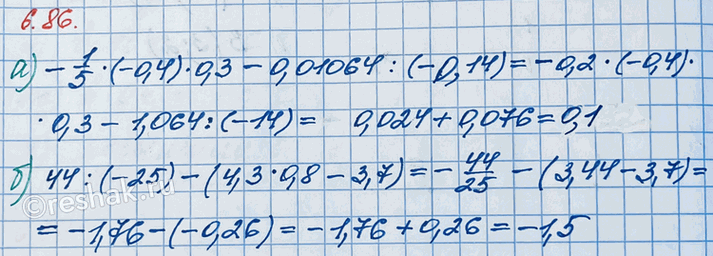 6.86.
а) -1/5 · (-0,4) · 0,3 - 0,01064 : (-0,14) = -0,2 · (-0,4) ·
· 0,3 - 1,064 : (-14) = 0,024 + 0,076 = 0,1
б) 44 : (-25) - (4,3 · 0,8 - 3,7) = - 44/25 - (3,44 - 3,7) =
= -1,76 - (-0,26) = -1,76 + 0,26 = -1,5